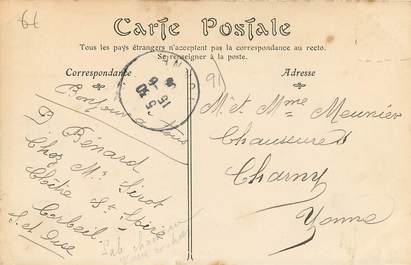 61
Carte Postale
Tous les pays étrangers n'acceptent pas la correspondance au recto.
Se renseigner à la poste.
Correspondance
Adresse
91
Bonjour à tous
B Bénard
Chez Mr Sirot
Cloître St Spire
Corbeil
S. et Oise
M. et Mme Meunier
Chaussures
Charny
Yonne